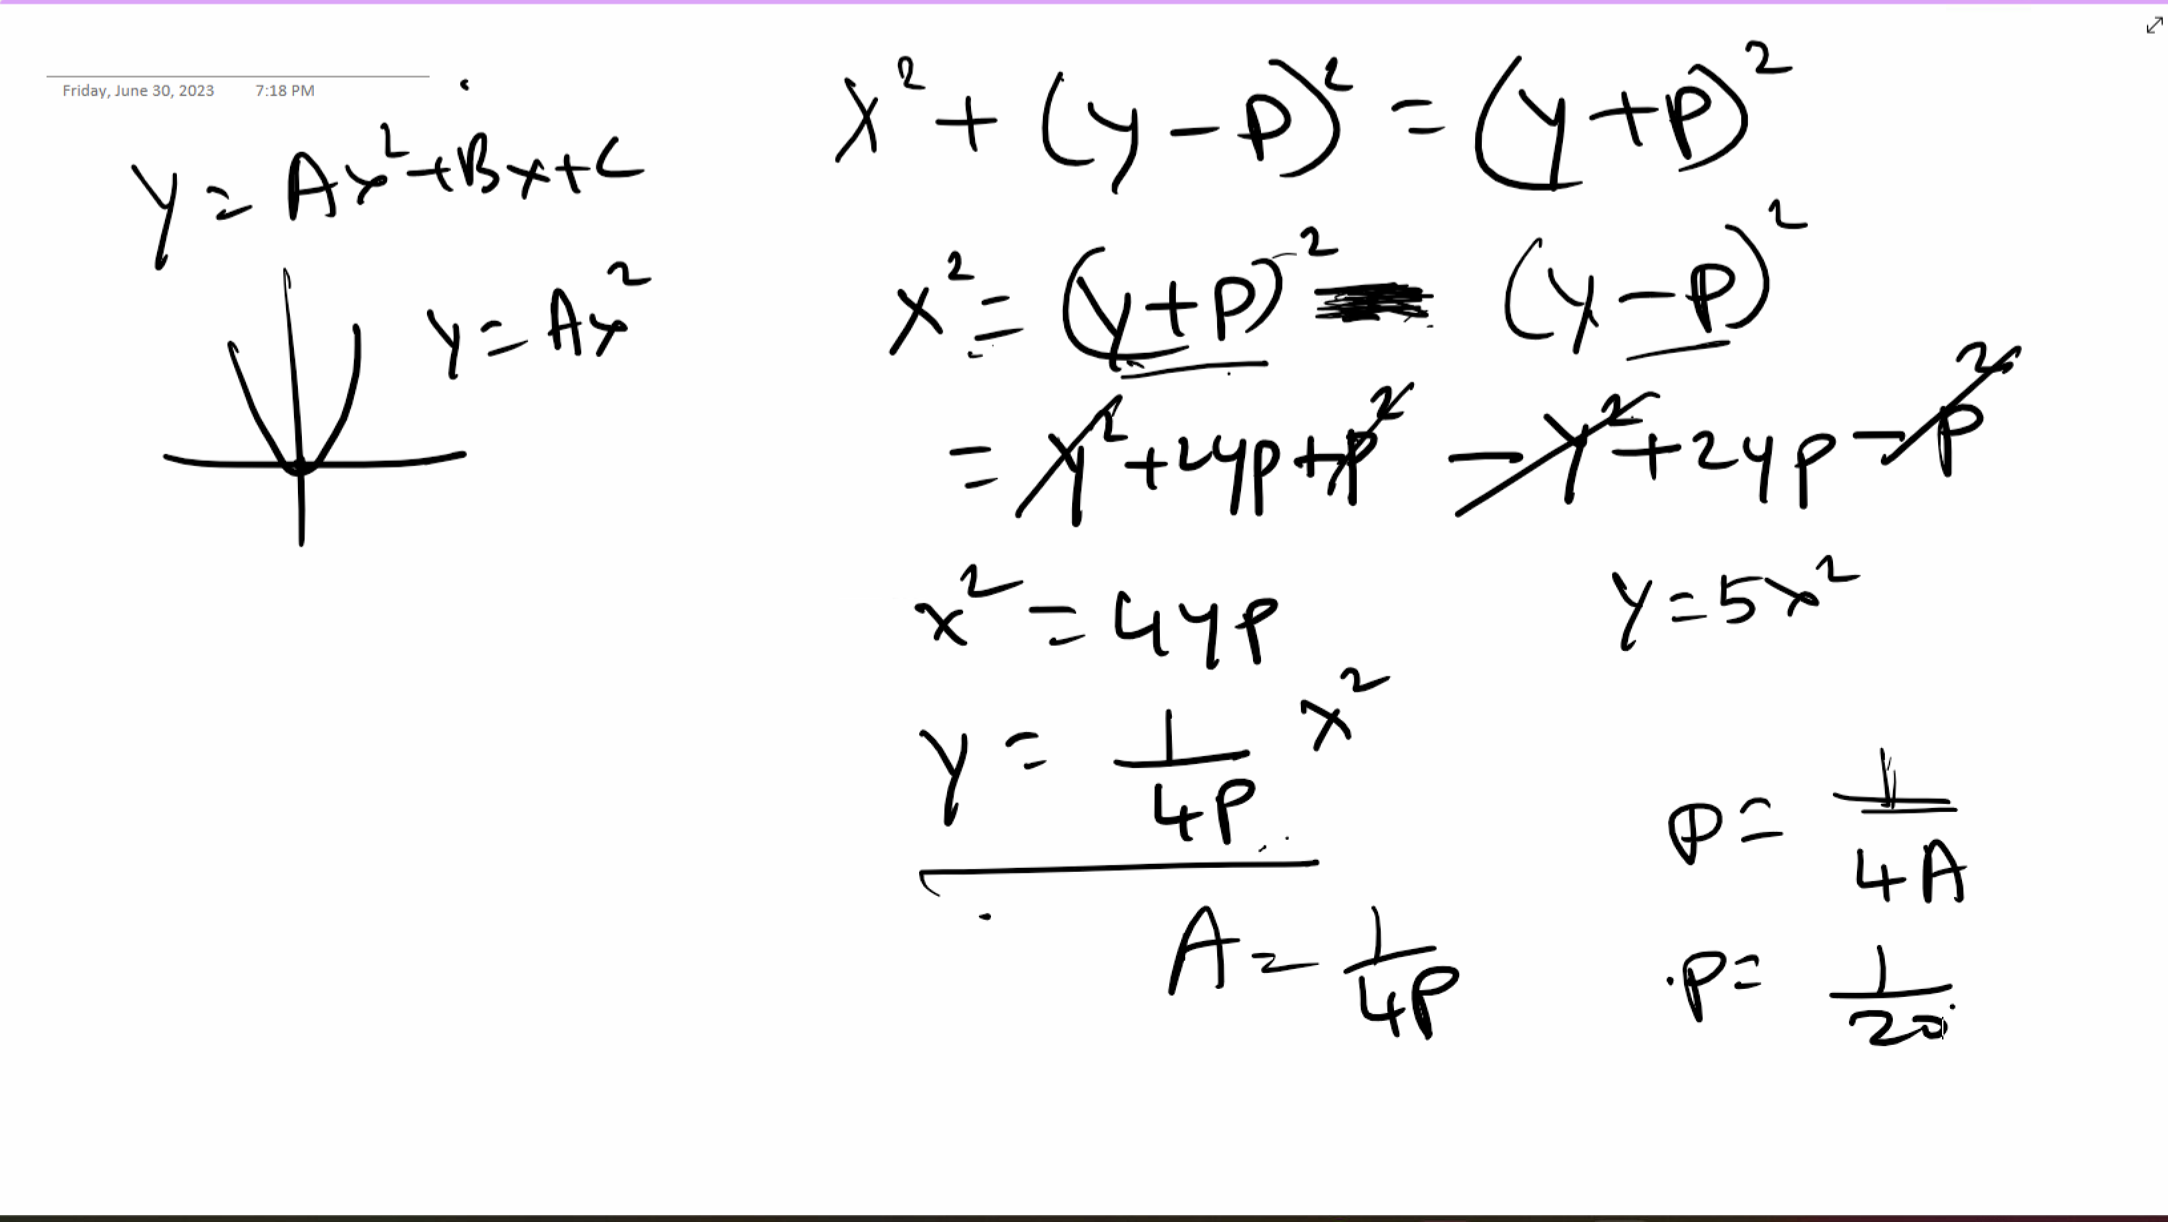 Friday, June 30, 2023 7:18 PM
y = Ax² + Bx + C
y = Ax²
x² + (y - p)² = (y + p)²
x² = (y + p)² - (y - p)²
= y² + 2yp + p² - y² + 2yp - p²
x² = 4yp
y = 5x²
y = 1/4p x²
A = 1/4p
p = 1/4A
p = 1/20